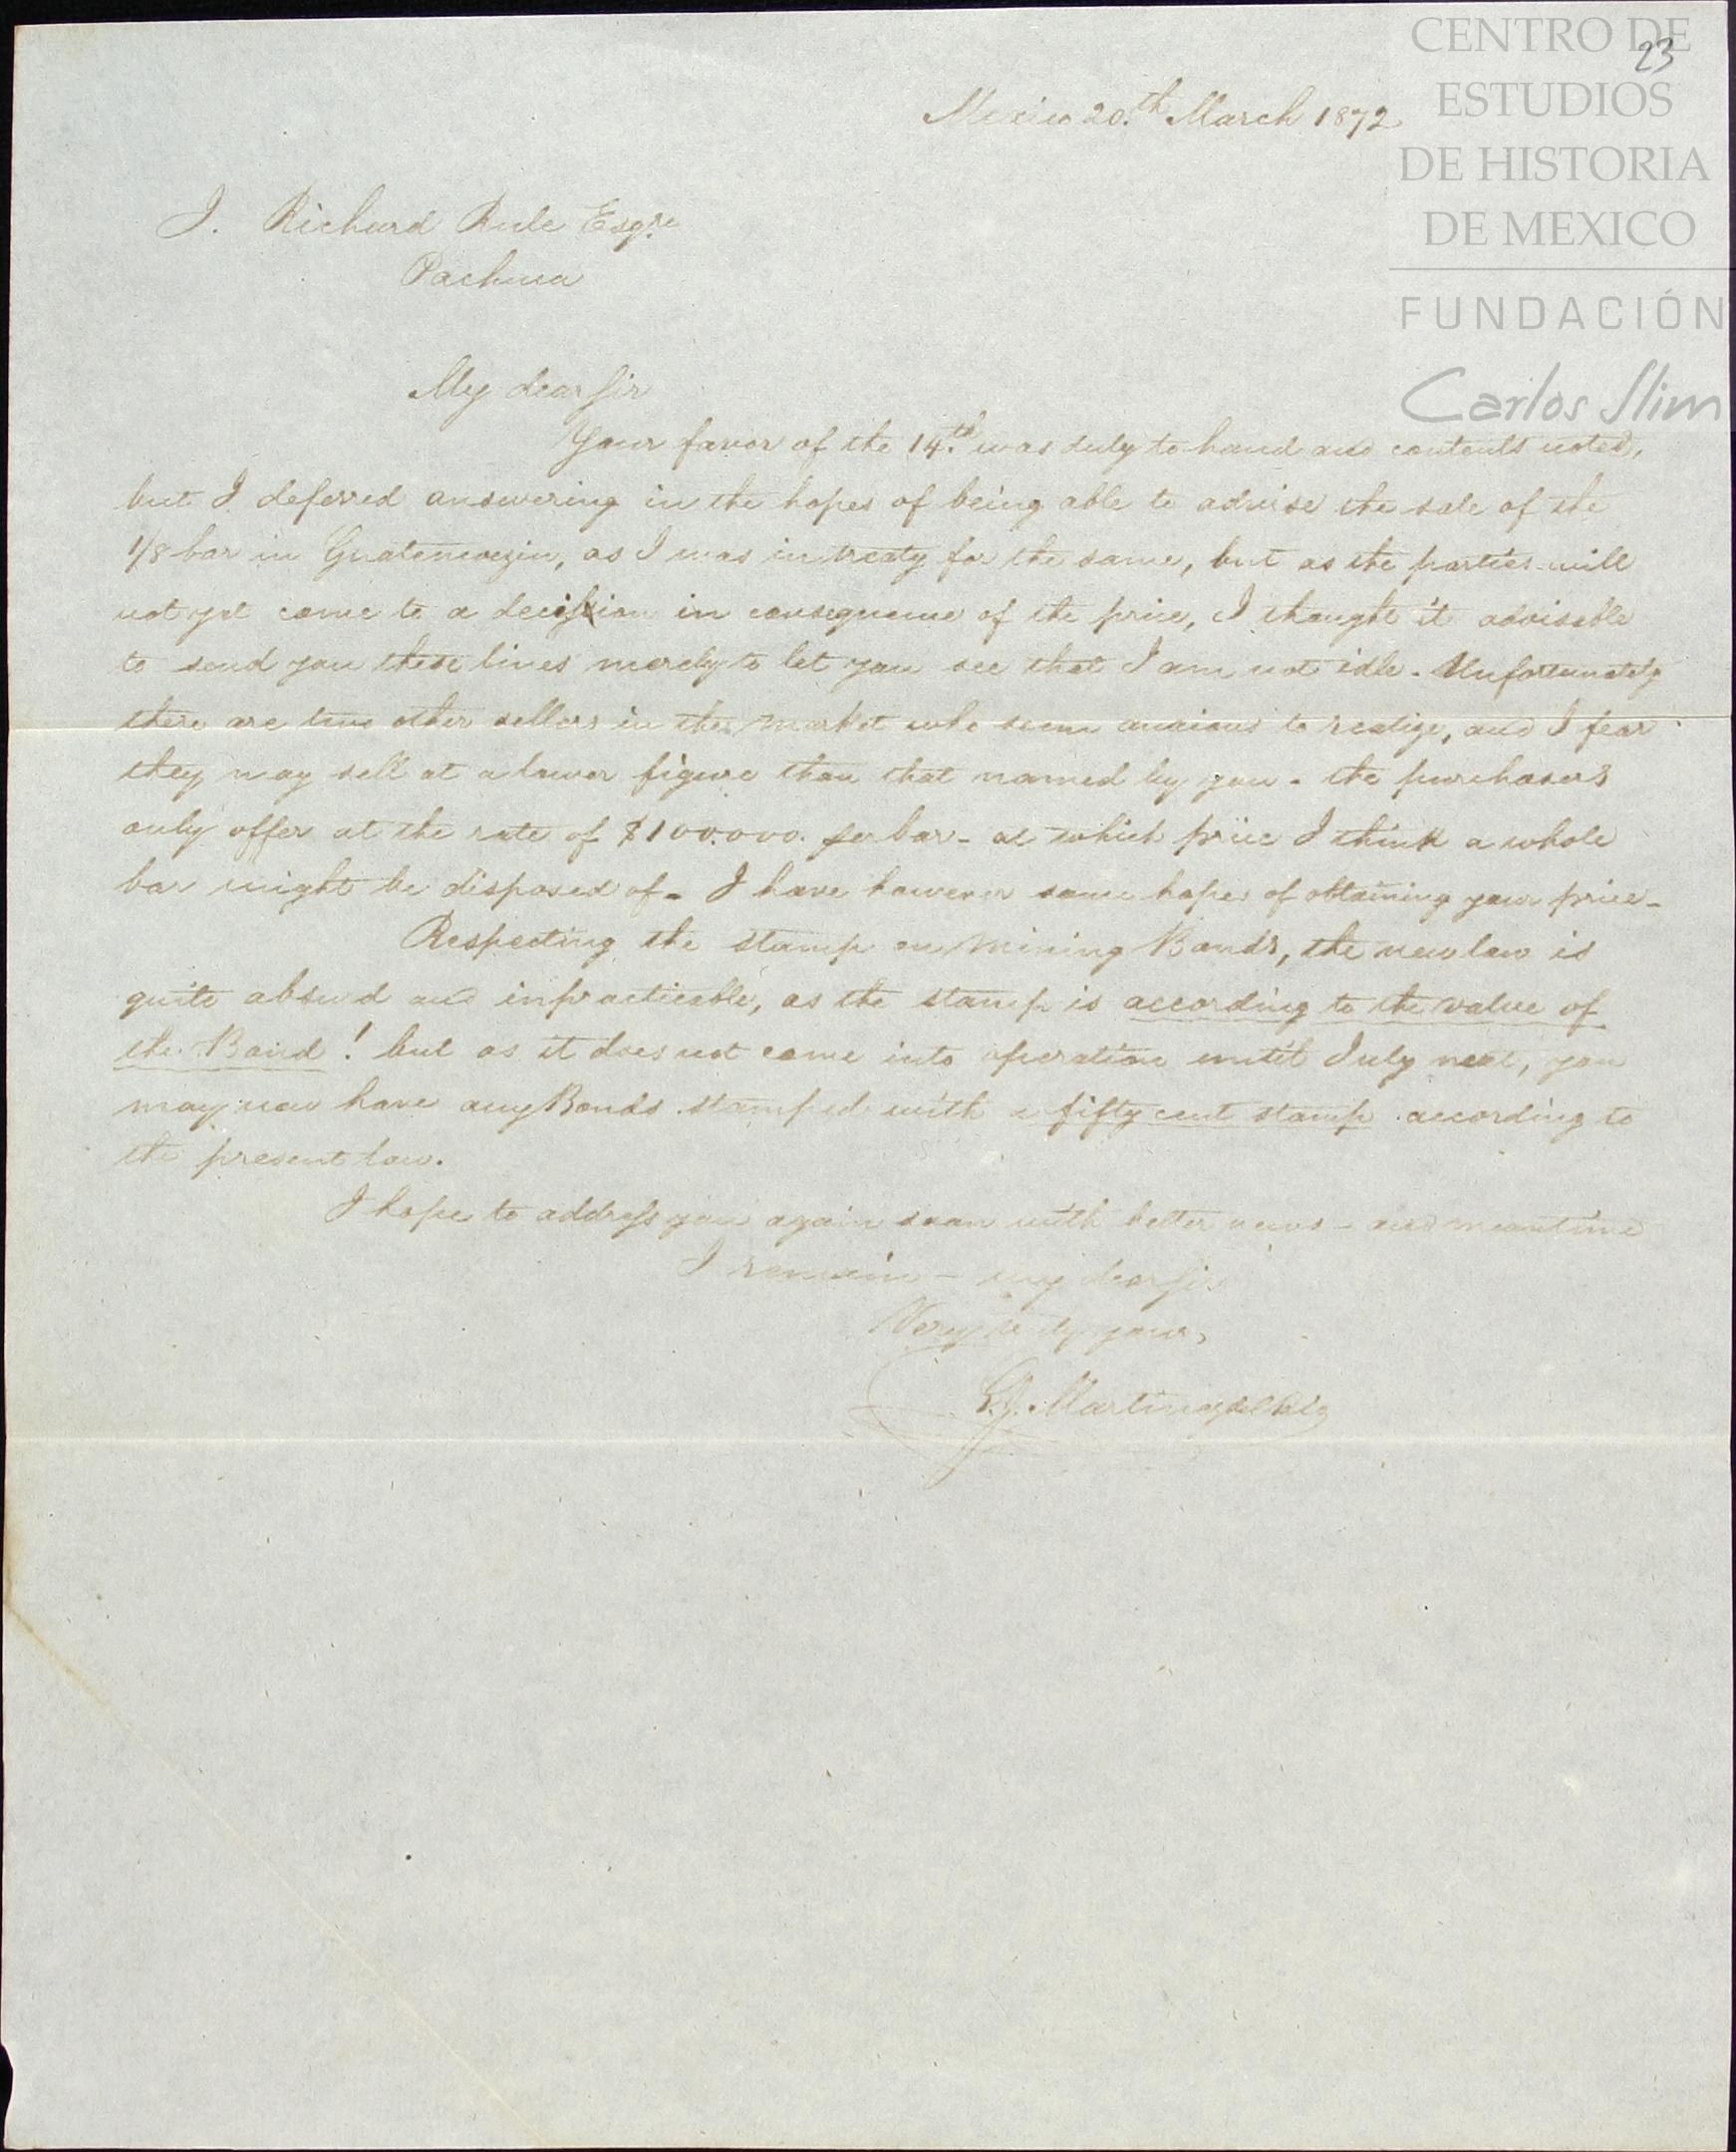 CENTRO DE
ESTUDIOS
DE HISTORIA
DE MEXICO
FUNDACIÓN
Carlos Slim
23
Mexico 20.th March 1872
J. Richard Rule Esqre
Pachuca
My dear Sir
Your favor of the 14.th was duly to hand and contents noted,
but I deferred answering in the hopes of being able to advise the sale of the
1/8 bar in Guatemoczin, as I was in treaty for the same, but as the parties will
not yet come to a decision in consequence of the price, I thought it advisable
to send you these lines merely to let you see that I am not idle. Unfortunately
there are two other sellers in the market who seem anxious to realize, and I fear
they may sell at a lower figure than that named by you - the purchasers
only offer at the rate of $100.000. per bar - at which price I think a whole
bar might be disposed of - I have however some hopes of obtaining your price -
Respecting the stamp on Mining Bonds, the new law is
quite absurd and inpracticable, as the stamp is according to the value of
the Bond! but as it does not come into operation until July next, you
may now have any Bonds stamped with a fifty cent stamp according to
the present law.
I hope to address you again soon with better news - and meantime
I remain - my dear Sir
Very truly yours,
Martinez del Rio